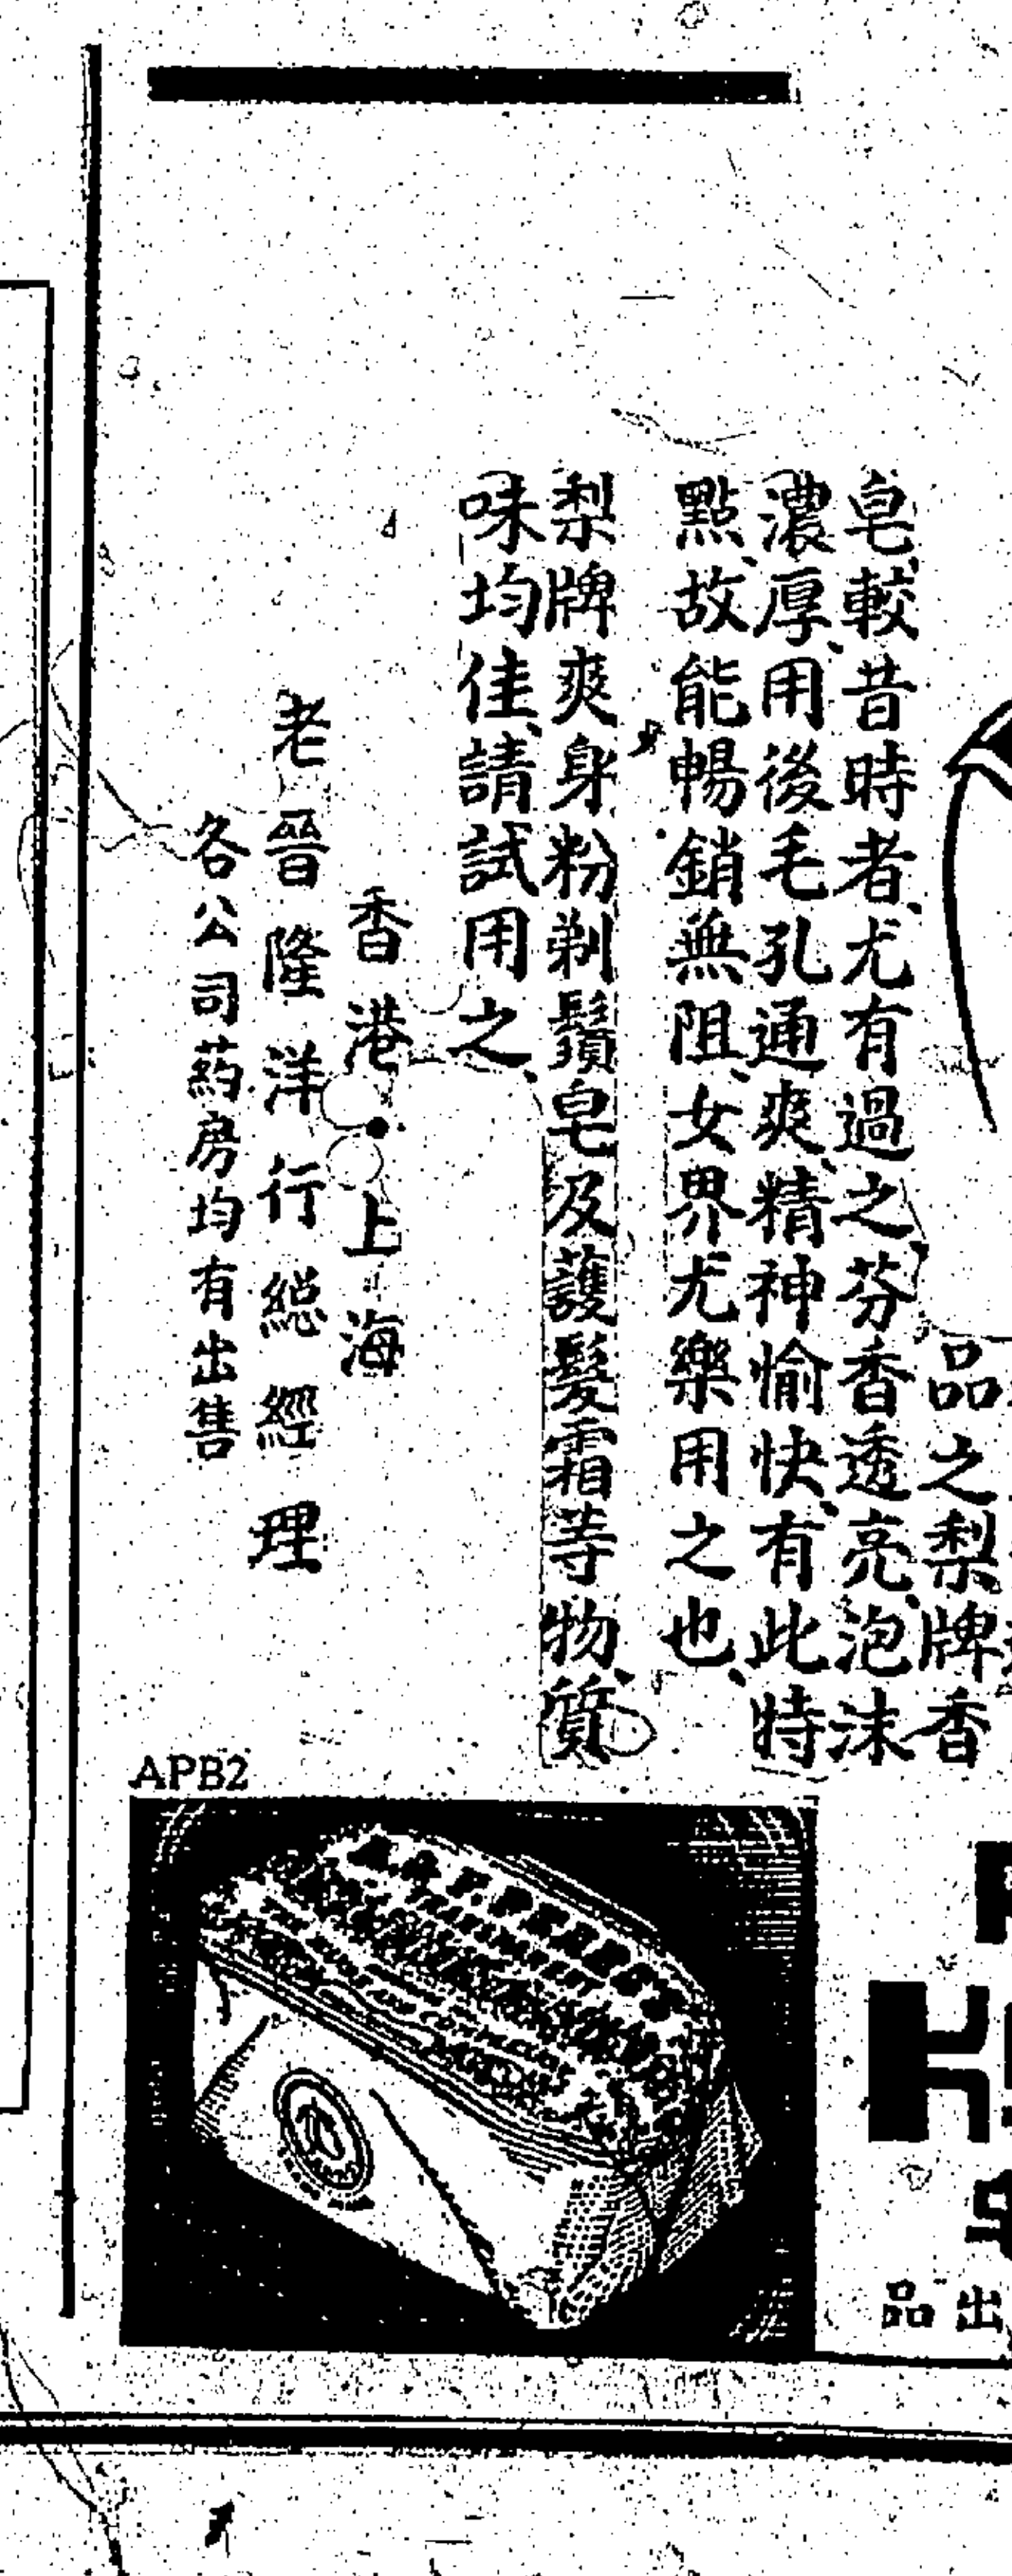 品之梨牌香
皂、較昔時者、尤有過之、芬香透亮、泡沫
濃厚、用後毛孔通爽、精神愉快、有此特
點、故能暢銷無阻、女界尤樂用之也、
梨牌爽身粉剃鬚皂及護髮霜等物、質
味均佳、請試用之、
香港·上海
老晉隆洋行總經理
各公司葯房均有出售
APB2
出品